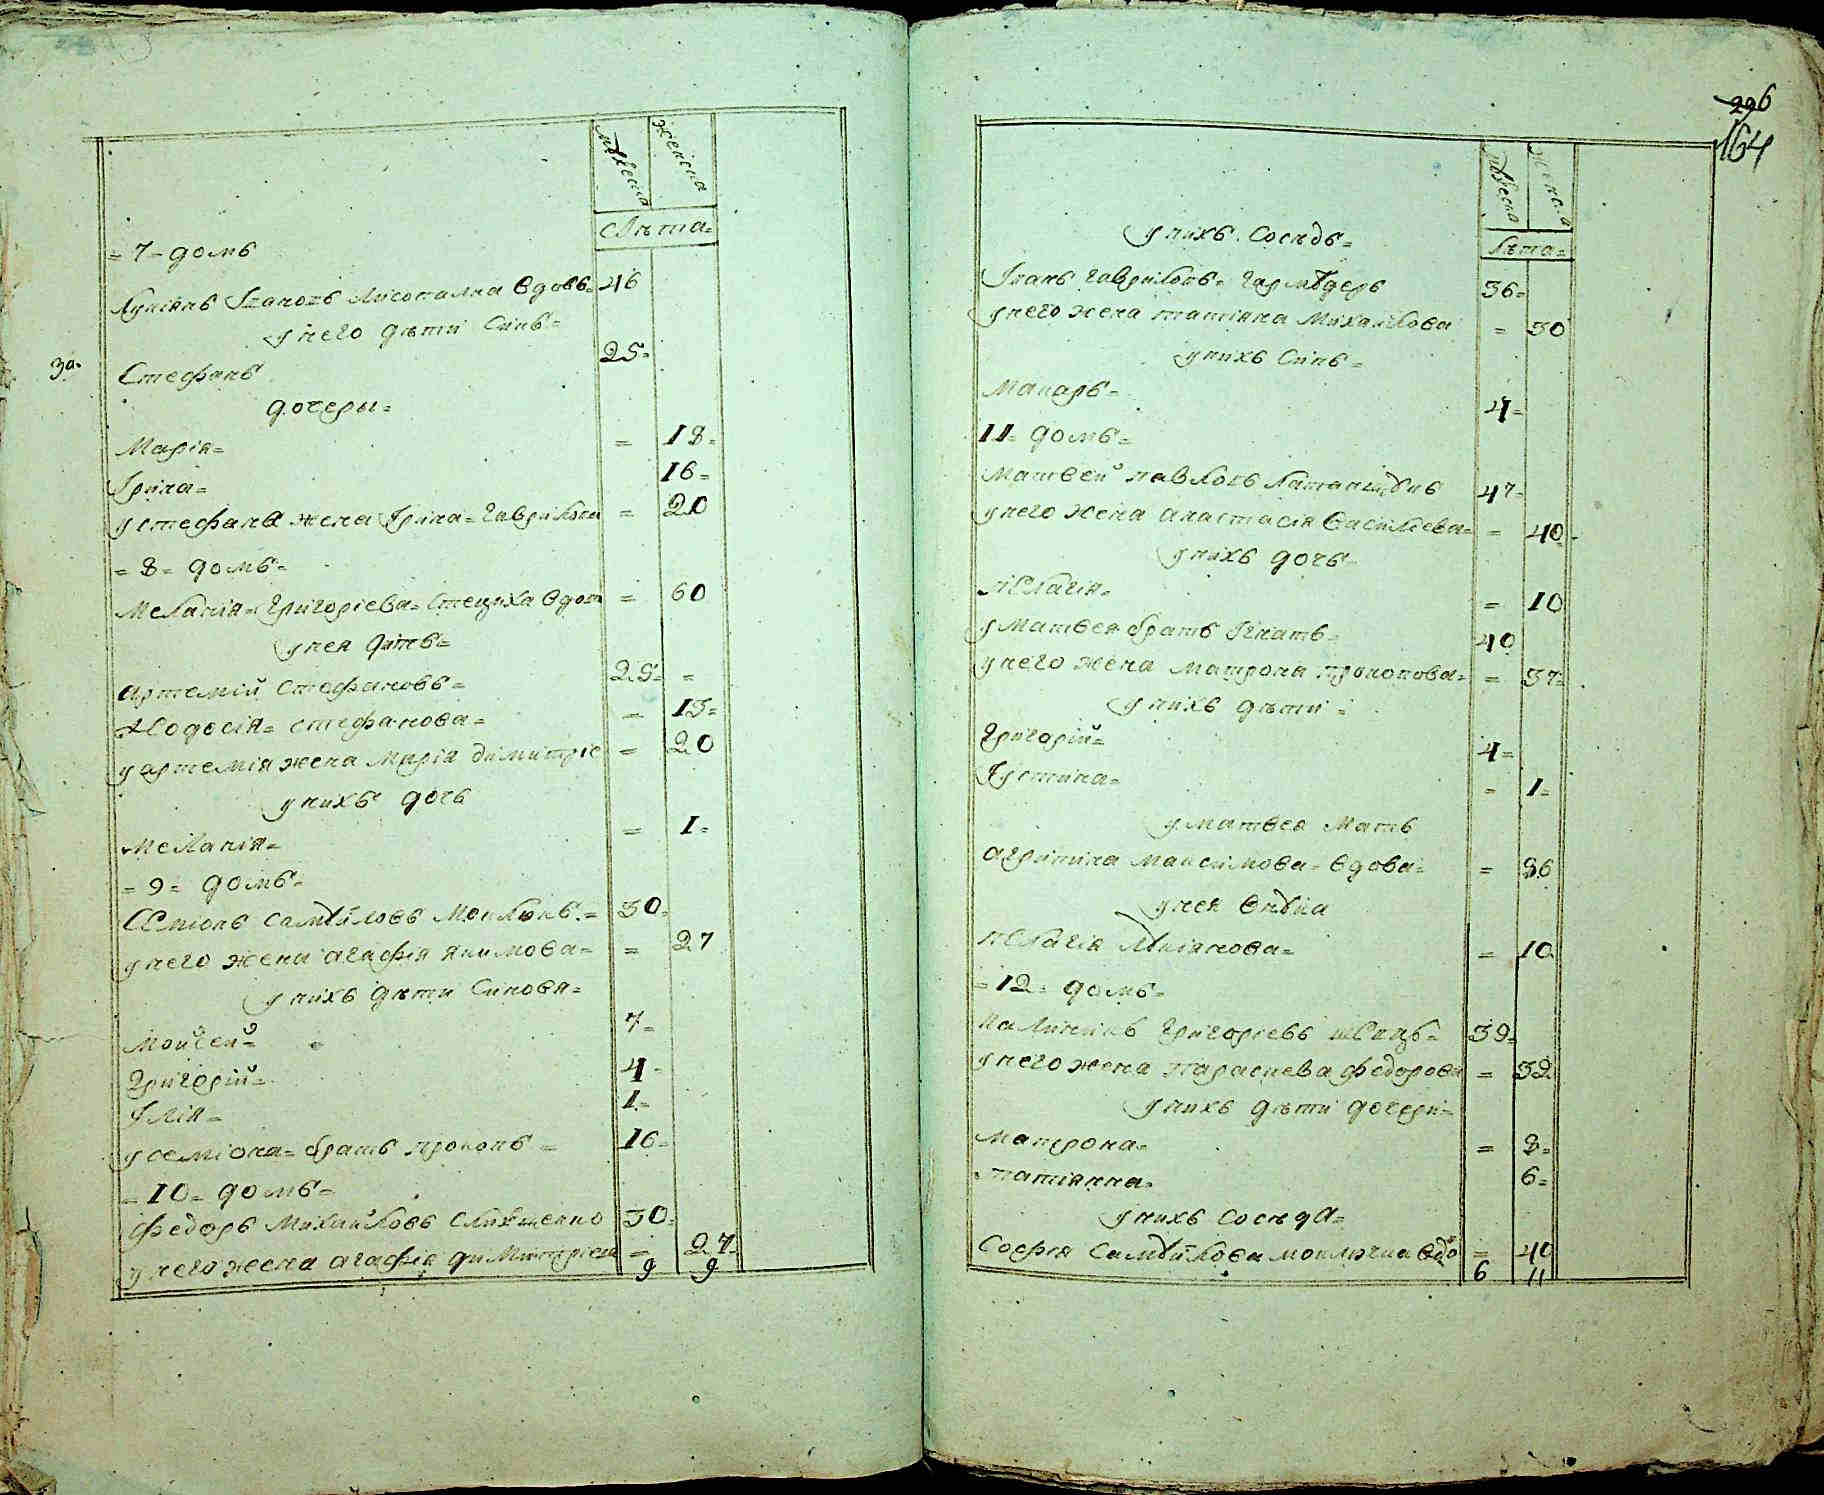 мужеска женска
Лѣта=
=7= домъ
Купіянъ Ивановъ Лисопалка вдовъ= 46
у него дѣти Синъ=
30. Стефанъ 25=
дочеры=
Марія= = 18=
Ірина= 16=
у стефана жена Ірина= Гаврилова = 20
=8= домъ=
Меланія= Григоріева= Стециха вдова = 60
у нея дѣтъ=
артемій стефановъ= 25= =
Ѳеодосія= стефанова= = 13=
у артемія жена Марія димитріе = 20
у нихъ дочь
Меланія= = 1=
=9= домъ=
Семіонъ самуйловъ = 30=
у него жена агафія якимова= = 27
у нихъ дѣти Синовя=
Мойсей= 7=
Григорій= 4=
Ілія= 1=
у семіона= братъ прокопъ= 16=
=10= домъ=
Федоръ Михайловъ 30=
у него жена агафія димитріева = 27=
9 9
296
164
мужеска женска
Лѣта=
у нихъ Сосѣдъ=
Іванъ Гавриловъ= 36=
у него жена татіяна Михайлова = 30
у нихъ Синъ=
Макаръ= 4=
11= домъ=
Матвей павловъ 47=
у него жена анастасія василіева= = 40
у нихъ дочь
пелагія= = 10
у Матвея братъ Ігнатъ= 40
у него жена матрона прокопова= = 37=
у нихъ дѣти=
Григорій= 4=
Іустина= = 1=
у матвея мать
агрипина максимова= вдова= = 86
у нея внука
пелагія Лукіянова= = 10
=12= домъ=
калиникъ Григоріевъ швецъ= 39=
у него жена параскева федорова = 32
у нихъ дѣти дочери=
матрона= = 8=
татіанна= 6=
у нихъ Сосѣда=
Софія Самуйлова вдо = 40
6 11